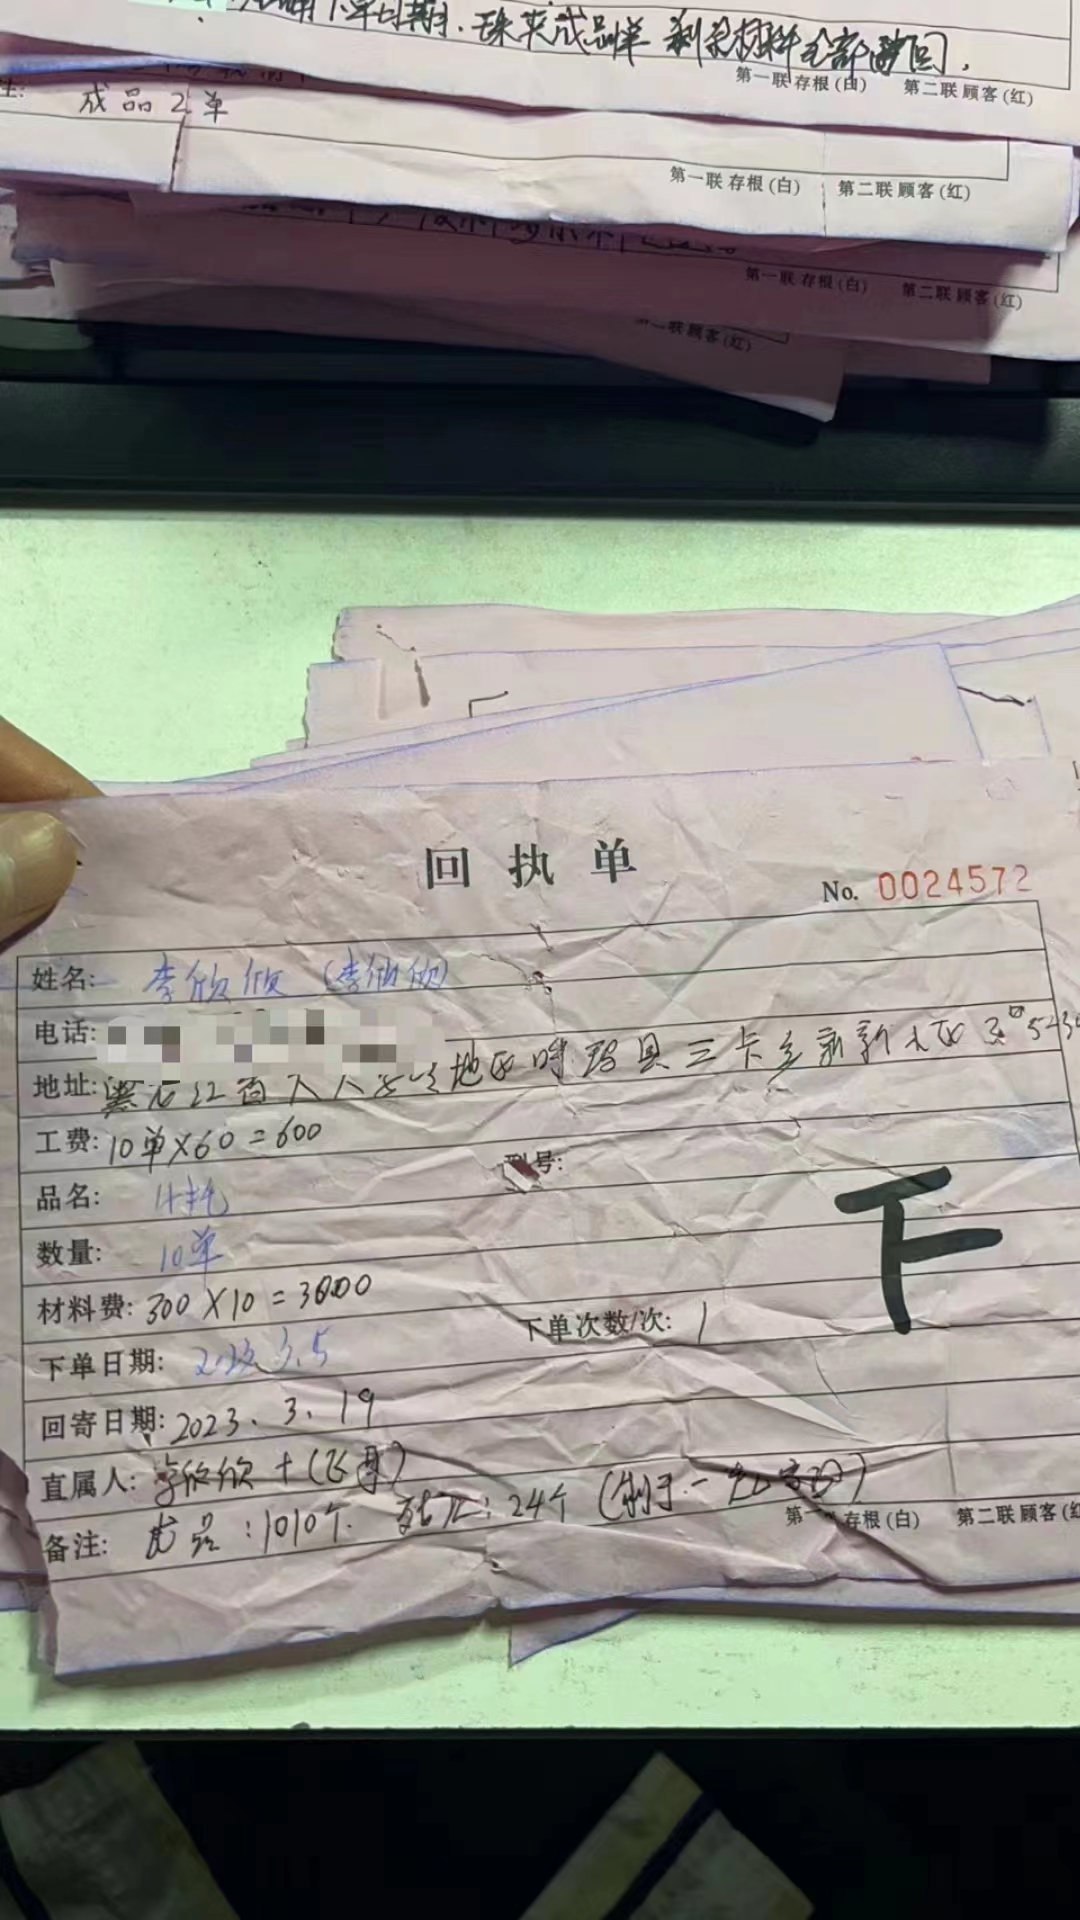 下单日期.珠夹成品单 剩余材料全部寄回.
第一联 存根(白) 第二联 顾客(红)
成品2单
第一联 存根(白) 第二联 顾客(红)
第一联 存根(白) 第二联 顾客(红)
第二联 顾客(红)
回执单
No. 0024572
姓名: 李欣欣 (李欣欣)
电话:
地址: 黑龙江省大兴安岭地区呼玛县三卡乡新新小区
工费: 10单X60=600
型号:
品名:
数量: 10单
材料费: 300X10=3000
下单次数/次: 1
下单日期: 2023.3.5
回寄日期: 2023.3.19
直属人: 李欣欣+
备注: 成品:1010个 24个
第一联 存根(白) 第二联 顾客(红
下